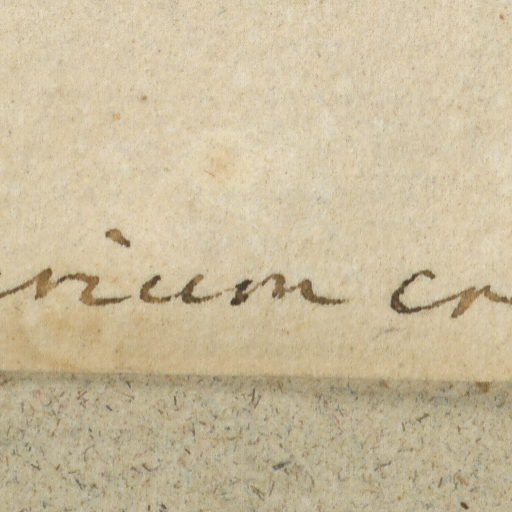 ricum cr